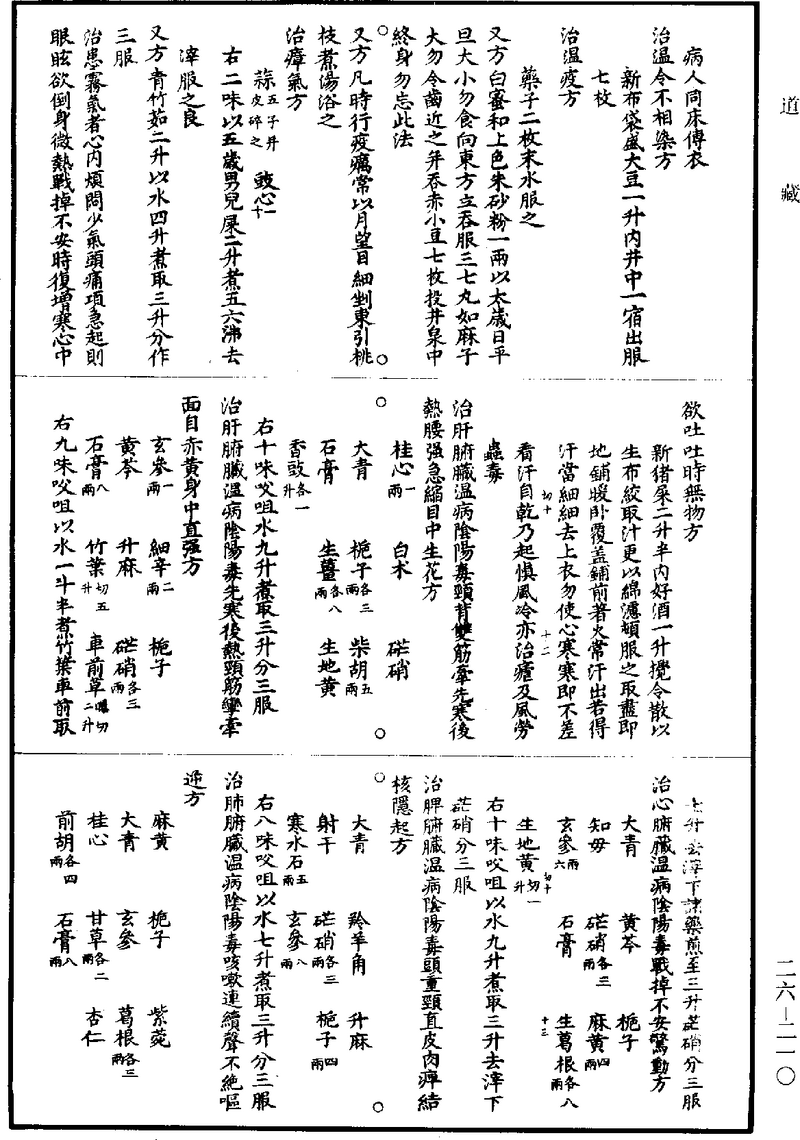 道藏
病人同床傳衣
治温令不相染方
新布袋盛大豆一升内井中一宿出服
七枚
治温疫方
藥子二枚末水服之
又方白蜜和上色朱砂粉一兩以太歲日平
旦大小勿食向東方立吞服三七丸如麻子
大勿令齒近之并吞赤小豆七枚投井泉中
終身勿忘此法
又方凡時行疫癘常以月望日細剉東引桃
枝煮湯浴之
治瘴氣方
蒜五子并皮碎之 豉心一十
右二味以五歲男兒屎二升煮五六沸去
滓服之良
又方青竹茹二升以水四升煮取三升分作
三服
治患霧氣者心内煩悶少氣頭痛項急起則
眼眩欲倒身微熱戰掉不安時復增寒心中
欲吐吐時無物方
新猪屎二升半内好酒一升攪令散以
生布絞取汁更以綿濾頓服之取盡即
地鋪暖卧覆蓋鋪前著火常汗出若得
汗當細細去上衣勿使心寒寒即不差
看汗自乾乃起慎風冷亦治瘧及風勞
蠱毒
治肝腑臟温病陰陽毒頸背雙筋牽先寒後
熱腰强急縮目中生花方
桂心一兩 白术 芒硝
大青 梔子各三兩 柴胡五兩
石膏 生薑各八兩 生地黄
香豉各一升
右十味㕮咀水九升煮取三升分三服
治肝腑臟温病陰陽毒先寒後熱頸筋攣牽
面目赤黄身中直强方
玄參一兩 細辛二兩 梔子
黄芩 升麻 芒硝各三兩
石膏八兩 竹葉切五升 車前草曝切二升
右九味㕮咀以水一斗半煮竹葉車前取
七升去滓下諸藥煎至三升芒硝分三服
治心腑臟温病陰陽毒戰掉不安驚動方
大青 黄芩 梔子
知母 芒硝各三兩 麻黄四兩
玄參六兩 石膏 生葛根各八兩
生地黄切一升
右十味㕮咀以水九升煮取三升去滓下
芒硝分三服
治脾腑臟温病陰陽毒頭重頸直皮肉痹結
核隱起方
大青 羚羊角 升麻
射干 芒硝各三兩 梔子四兩
寒水石五兩 玄參八兩
右八味㕮咀以水七升煮取三升分三服
治肺腑臟温病陰陽毒咳嗽連續聲不絶嘔
逆方
麻黄 梔子 紫菀
大青 玄參 葛根各三兩
桂心 甘草各二兩 杏仁
前胡各四兩 石膏八兩
二六—二一〇